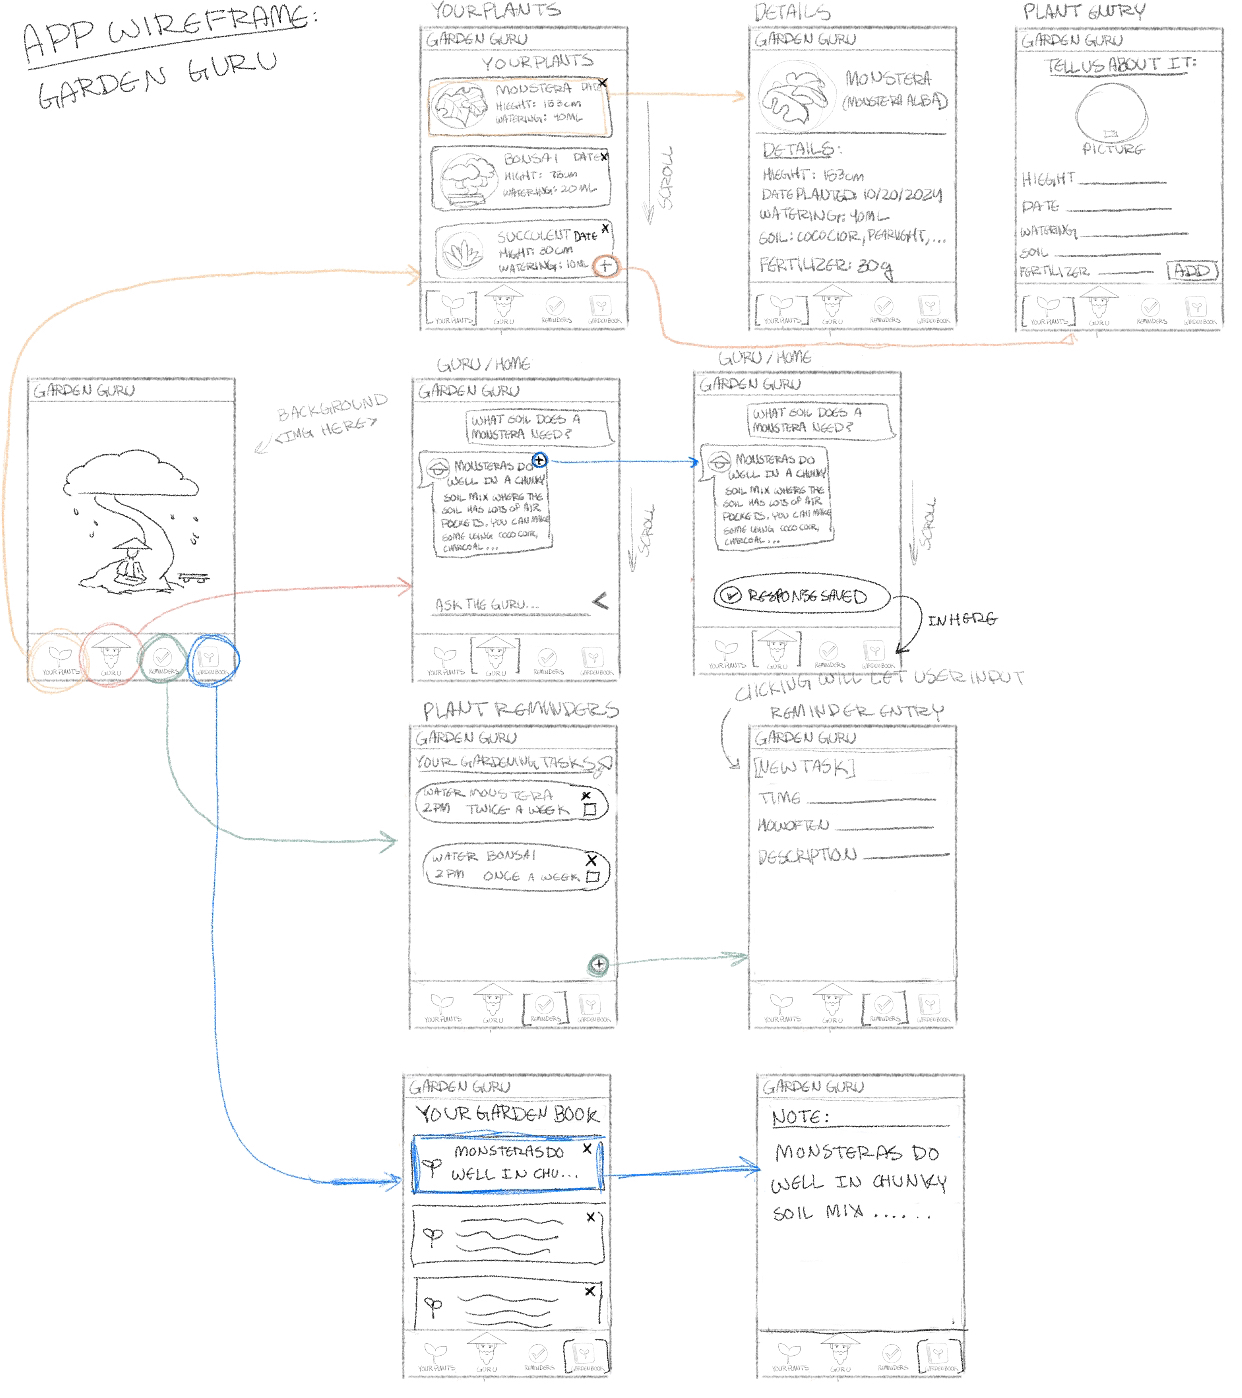 APP WIREFRAME:
GARDEN GURU
YOUR PLANTS
GARDEN GURU
YOUR PLANTS
MONSTERA DATE X
HIEGHT: 153cm
WATERING: 40ML
BONSAI DATE X
HIGHT: 78cm
WATERING: 20ML
SUCCULENT DATE X
HIGHT: 30cm
WATERING: 10ML +
YOUR PLANTS GURU REMINDERS GARDEN BOOK
SCROLL
DETAILS
GARDEN GURU
MONSTERA
(MONSTERA ALBA)
DETAILS:
HIEGHT: 153cm
DATE PLANTED: 10/20/2024
WATERING: 40ML
SOIL: COCO CIOR, PEARLIGHT,...
FERTILIZER: 30g
YOUR PLANTS GURU REMINDERS GARDEN BOOK
PLANT ENTRY
GARDEN GURU
TELL US ABOUT IT:
PICTURE
HIEGHT
DATE
WATERING
SOIL
FERTILIZER ADD
YOUR PLANTS GURU REMINDERS GARDEN BOOK
GARDEN GURU
BACKGROUND
<IMG HERE>
YOUR PLANTS GURU REMINDERS GARDEN BOOK
GURU / HOME
GARDEN GURU
WHAT SOIL DOES A
MONSTERA NEED?
MONSTERAS DO +
WELL IN A CHUNKY
SOIL MIX WHERE THE
SOIL HAS LOTS OF AIR
POCKETS, YOU CAN MAKE
SOME USING COCO COIR,
CHARCOAL...
ASK THE GURU... <
YOUR PLANTS GURU REMINDERS GARDEN BOOK
SCROLL
GURU / HOME
GARDEN GURU
WHAT SOIL DOES A
MONSTERA NEED?
MONSTERAS DO
WELL IN A CHUNKY
SOIL MIX WHERE THE
SOIL HAS LOTS OF AIR
POCKETS, YOU CAN MAKE
SOME USING COCO COIR,
CHARCOAL...
RESPONSE SAVED
YOUR PLANTS GURU REMINDERS GARDEN BOOK
SCROLL
IN HERE
CLICKING WILL LET USER INPUT
PLANT REMINDERS
GARDEN GURU
YOUR GARDENING TASKS
WATER MONSTERA X
2PM TWICE A WEEK
WATER BONSAI X
2PM ONCE A WEEK
+
YOUR PLANTS GURU REMINDERS GARDEN BOOK
REMINDER ENTRY
GARDEN GURU
[NEW TASK]
TIME
HOW OFTEN
DESCRIPTION
YOUR PLANTS GURU REMINDERS GARDEN BOOK
GARDEN GURU
YOUR GARDEN BOOK
MONSTERAS DO X
WELL IN CHU...
X
X
YOUR PLANTS GURU REMINDERS GARDEN BOOK
GARDEN GURU
NOTE:
MONSTERAS DO
WELL IN CHUNKY
SOIL MIX ......
YOUR PLANTS GURU REMINDERS GARDEN BOOK